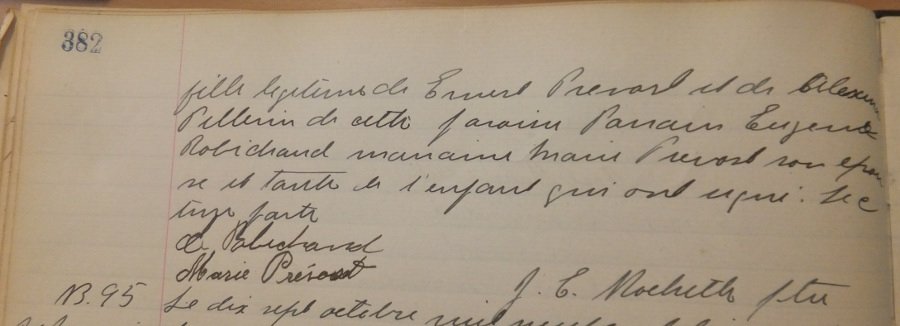 382
fille legitime de Ernest Prevost et de Alexin
Pellerin de cette paroisse Parrain Eugene
Robichaud marraine Marie Prevost son epou
se et tante de l'enfant qui ont signé. Lec
ture faite
E. Robichaud
Marie Prévost
J. E. ptre
B. 95
Le dix sept octobre mil